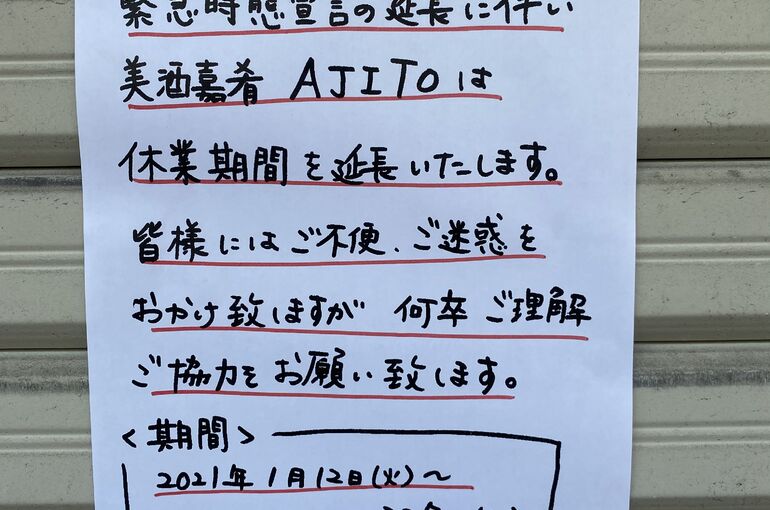 緊急時態宣言の延長に伴い
美酒嘉肴 AJITOは
休業期間を延長いたします。
皆様にはご不便、ご迷惑を
おかけ致しますが 何卒 ご理解
ご協力をお願い致します。
<期間>
2021年1月12日(火)~